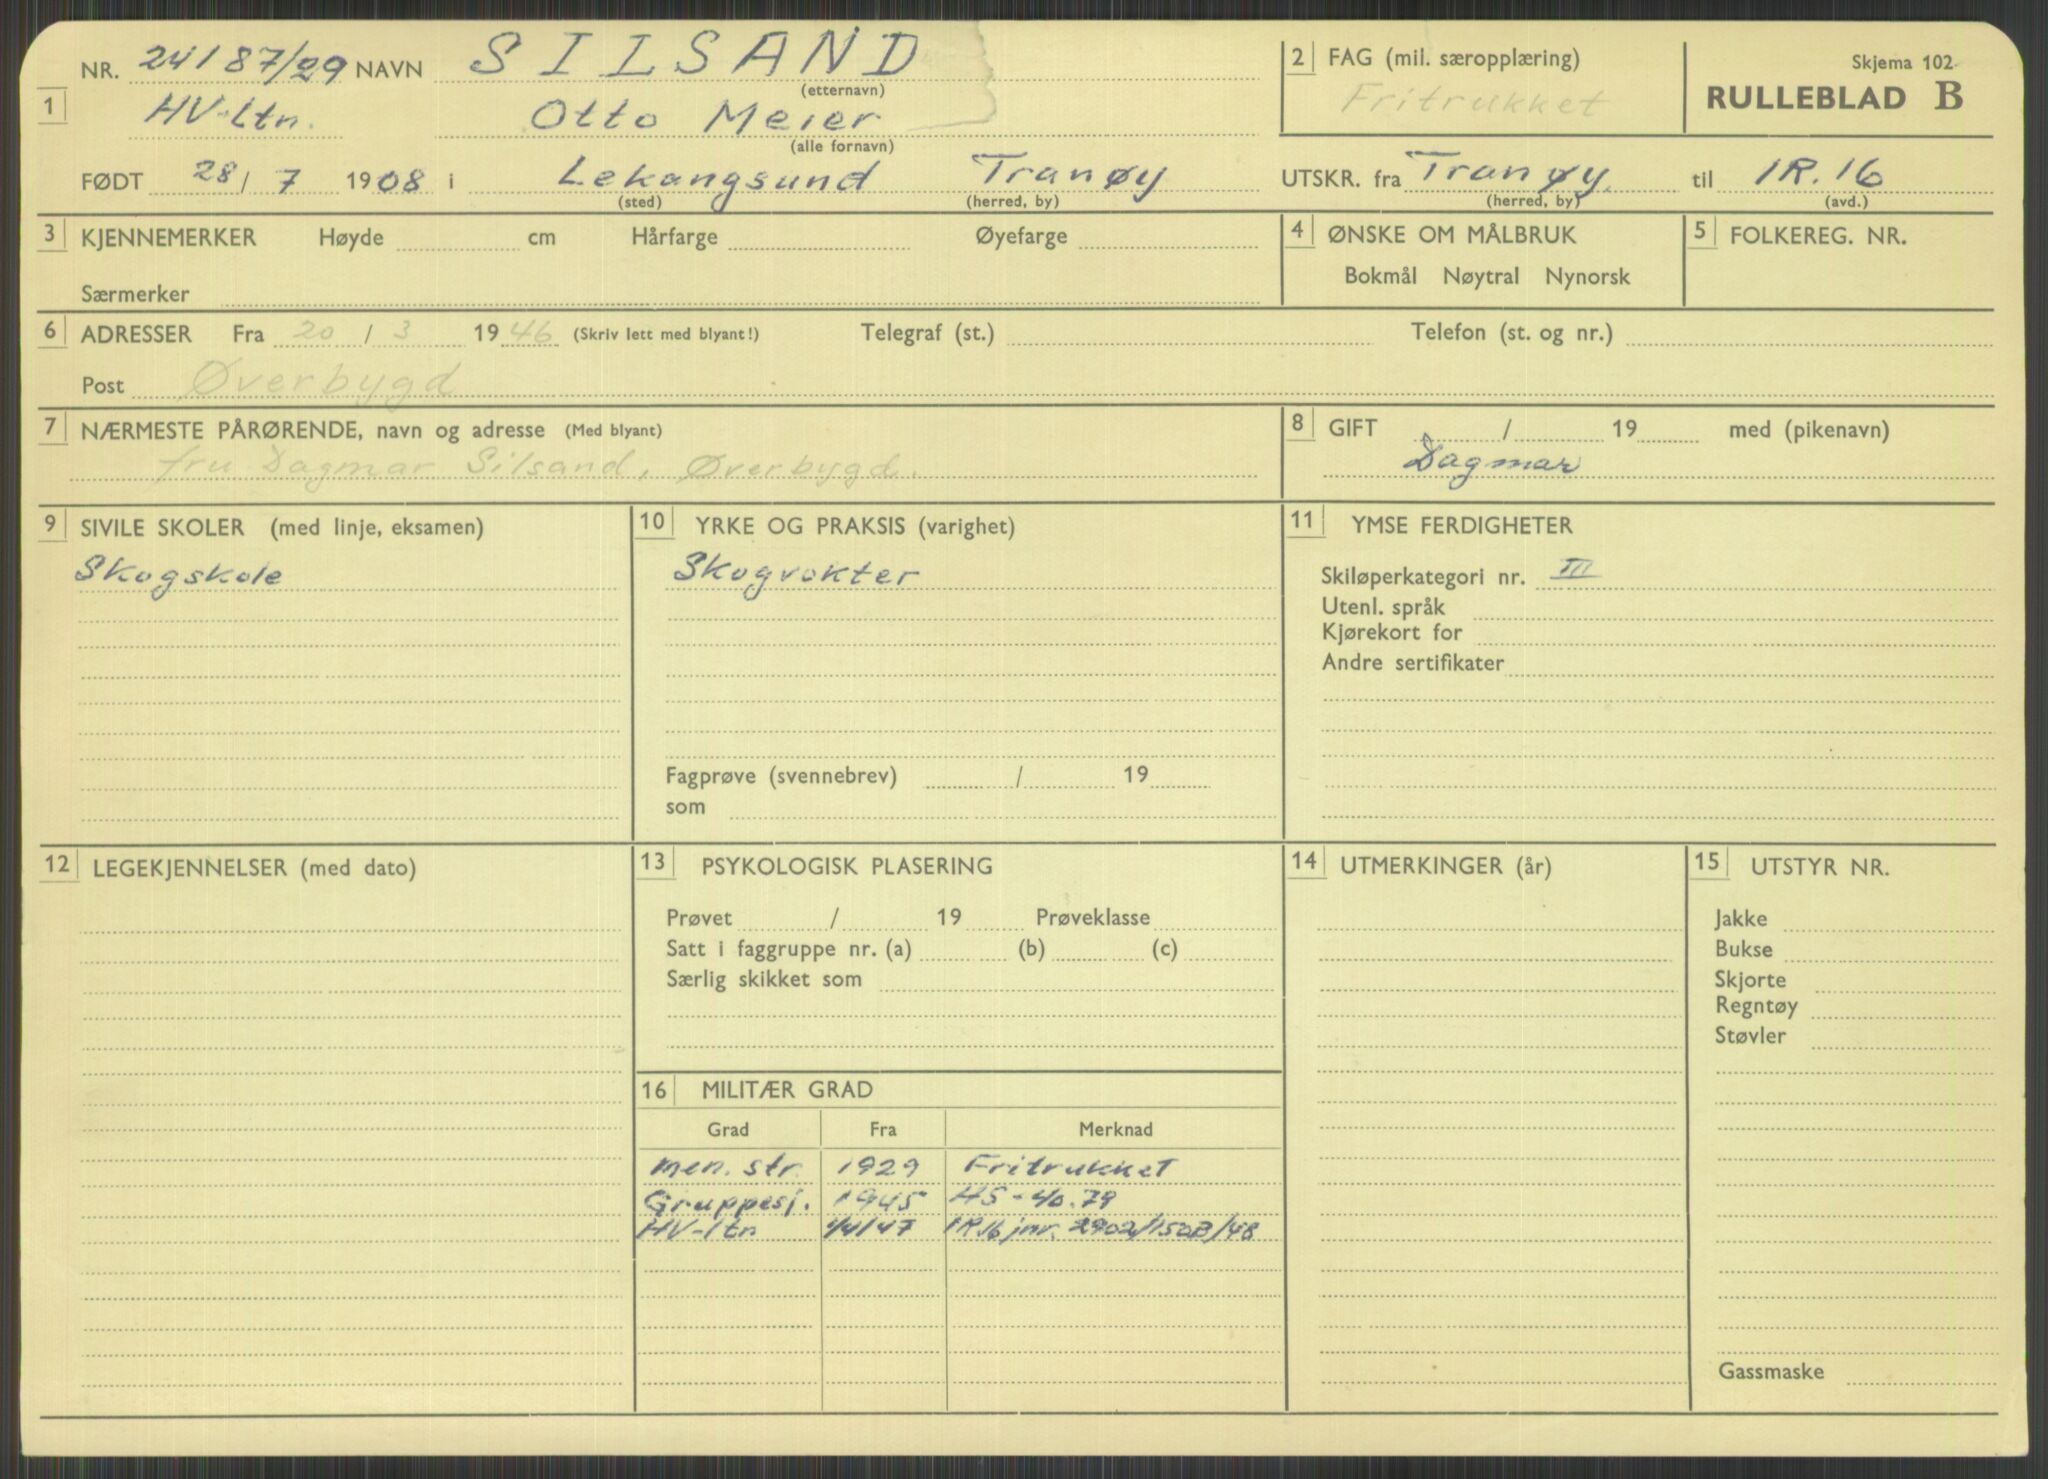 NR. 24187/29 NAVN SILSAND
(etternavn)
1 HV-ltn. Otto Meier
(alle fornavn)
FØDT 28/ 7 1908 i Lekangsund Tranøy
(sted) (herred, by)
2 FAG (mil. særopplæring)
Fritrukket
Skjema 102
RULLEBLAD B
UTSKR. fra Tranøy til IR. 16
(herred, by) (avd.)
3 KJENNEMERKER Høyde cm Hårfarge Øyefarge
Særmerker
4 ØNSKE OM MÅLBRUK
Bokmål Nøytral Nynorsk
5 FOLKEREG. NR.
6 ADRESSER Fra 20 / 3 1946 (Skriv lett med blyant!) Telegraf (st.) Telefon (st. og nr.)
Post Øverbygd
7 NÆRMESTE PÅRØRENDE, navn og adresse (Med blyant)
fru Dagmar Silsand, Øverbygd.
8 GIFT / 19 med (pikenavn)
Dagmar
9 SIVILE SKOLER (med linje, eksamen)
Skogskole
10 YRKE OG PRAKSIS (varighet)
Skogvokter
Fagprøve (svennebrev) / 19
som
11 YMSE FERDIGHETER
Skiløperkategori nr. III
Utenl. språk
Kjørekort for
Andre sertifikater
12 LEGEKJENNELSER (med dato)
13 PSYKOLOGISK PLASERING
Prøvet / 19 Prøveklasse
Satt i faggruppe nr. (a) (b) (c)
Særlig skikket som
16 MILITÆR GRAD
Grad Fra Merknad
men. str. 1929 Fritrukket
Gruppesj. 1945 HS-40.79
HV-ltn 1/4/47 IR16 jnr. 2902/150B/48
14 UTMERKINGER (år)
15 UTSTYR NR.
Jakke
Bukse
Skjorte
Regntøy
Støvler
Gassmaske